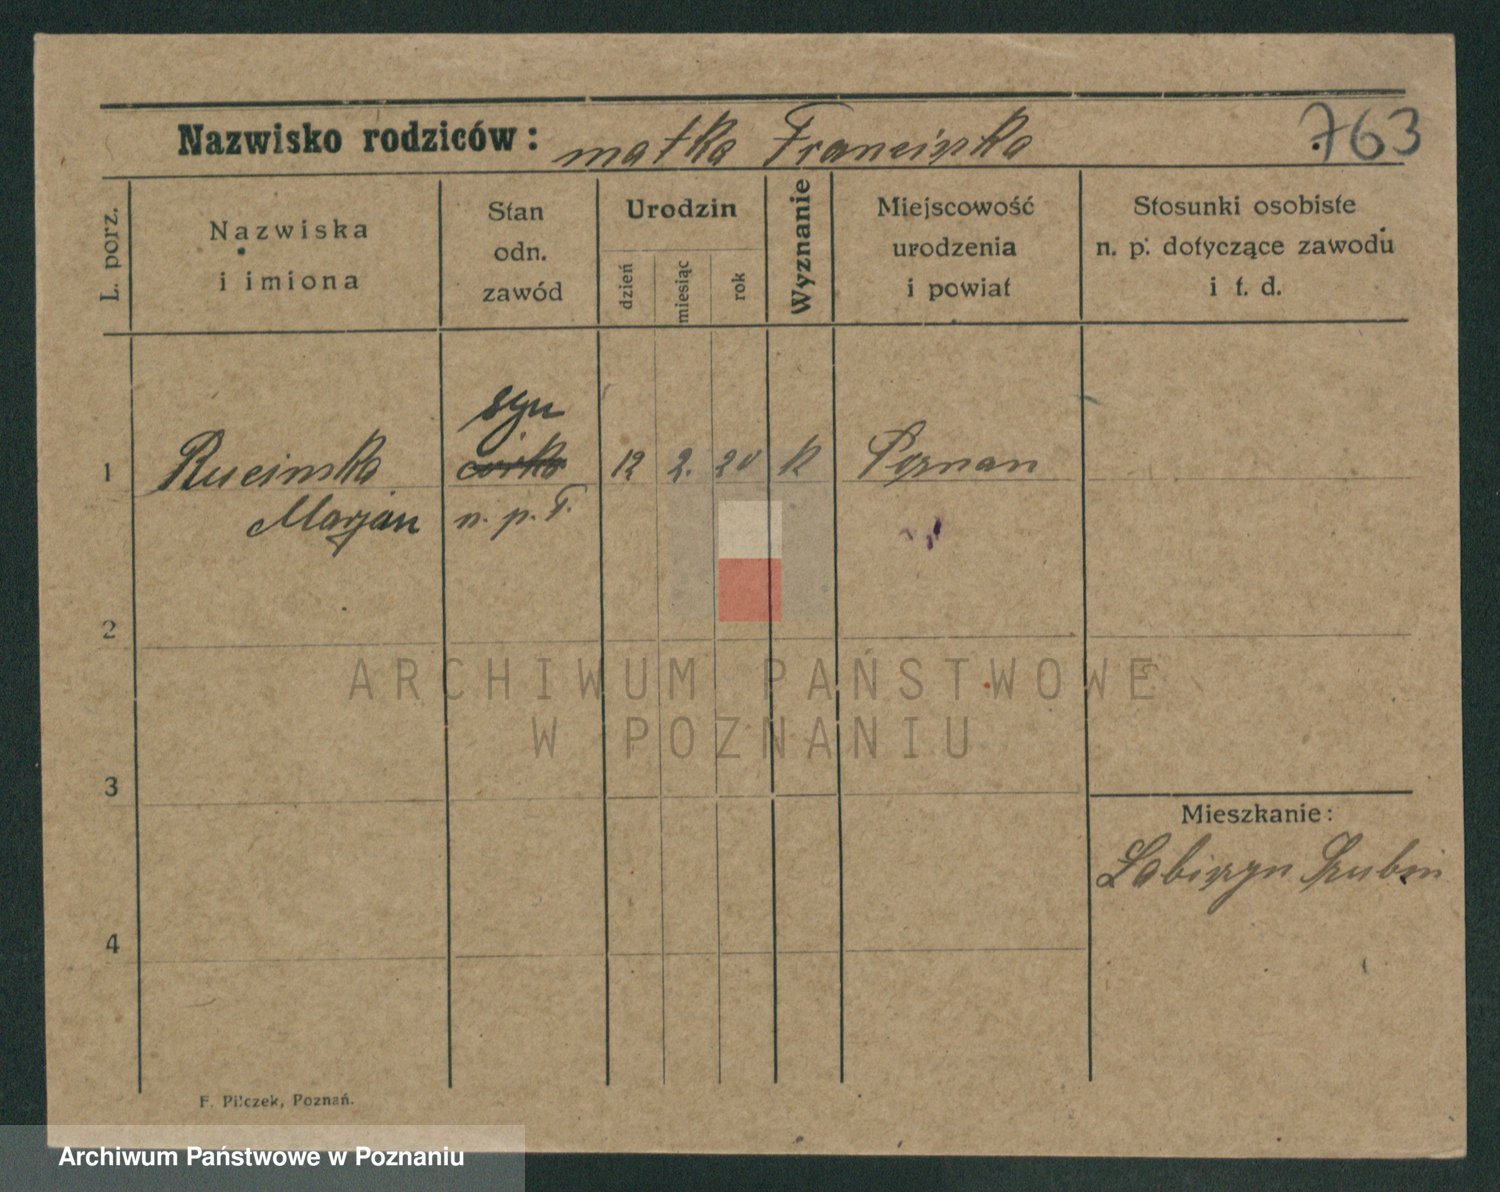 763
Nazwisko rodziców: matka Franciszka
L. porz.
Nazwiska
i imiona
Stan
odn.
zawód
Urodzin
dzień
miesiąc
rok
Wyznanie
Miejscowość
urodzenia
i powiat
Stosunki osobiste
n. p. dotyczące zawodu
i t. d.
syn
1 Rucinska córka 12 2. 20 k Poznan
Marjan n. p. F.
2
ARCHIWUM PAŃSTWOWE
W POZNANIU
3
Mieszkanie:
Łabiszyn Szubin
4
F. Pilczek, Poznań.
Archiwum Państwowe w Poznaniu